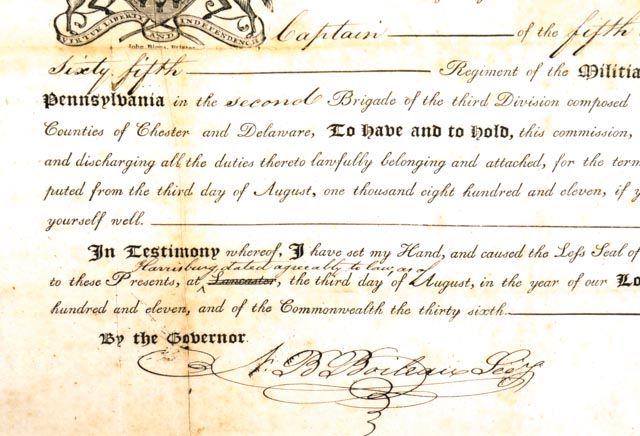 VIRTUE LIBERTY AND INDEPENDENCE
Captain of the fifth
Sixty fifth Regiment of the Militia
Pennsylvania in the second Brigade of the third Division composed
Counties of Chester and Delaware, To have and to hold, this commission,
and discharging all the duties thereto lawfully belonging and attached, for the term
puted from the third day of August, one thousand eight hundred and eleven, if y
yourself well.
In Testimony whereof, I have set my Hand, and caused the Less Seal of
Harrisburg, dated agreeably to law, as of
to these Presents, at Lancaster, the third day of August, in the year of our Lo
hundred and eleven, and of the Commonwealth the thirty sixth.
By the Governor.
N. B. Boileau Secy